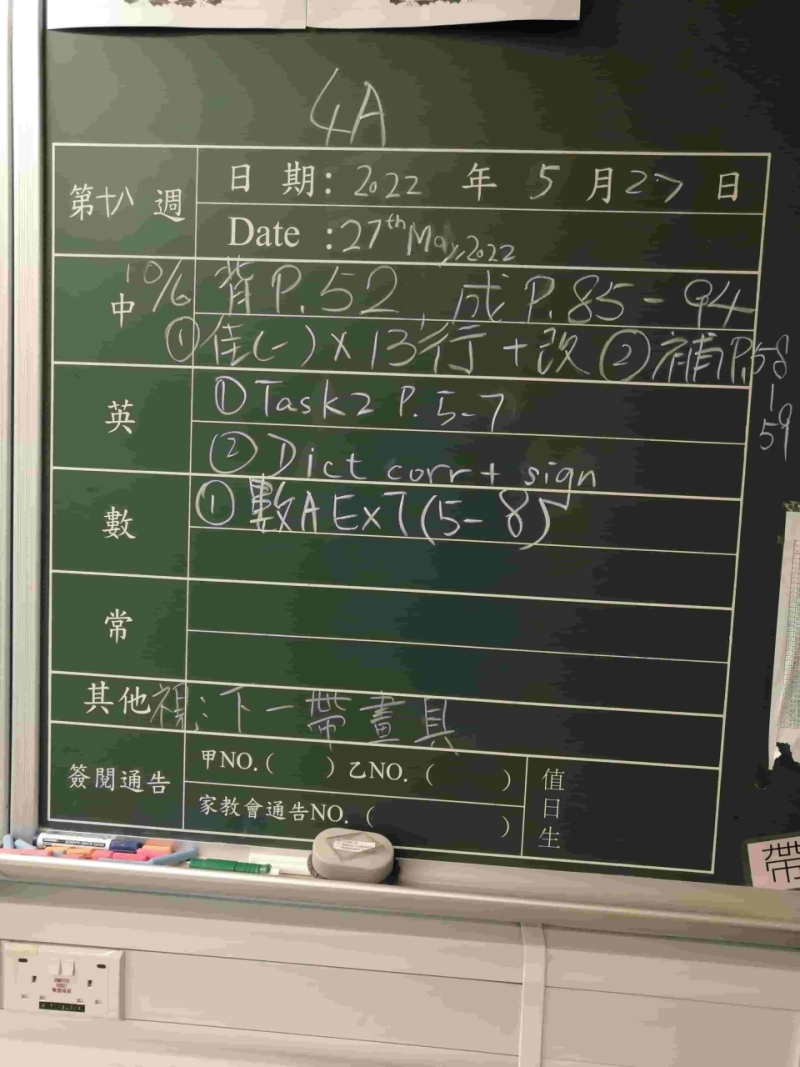 4A
第十八 週
日 期: 2022 年 5 月 27 日
Date : 27th May, 2022
中
10/6 背P.52, 成P.85-94
①佳(一)×13行+改 ②補P.58-59
英
① Task2 P.5-7
② Dict corr + sign
數
① 數A Ex7(5-8)
常
其他
視:下一帶畫具
簽閱通告
甲NO.( ) 乙NO.( )
家教會通告NO.( )
值日生
帶